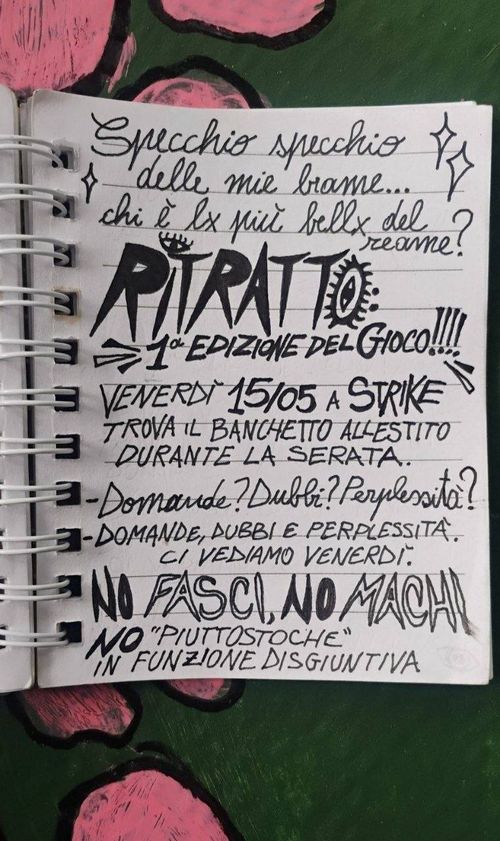 Specchio specchio
delle mie brame...
chi è lx più bellx del
reame?
RITRATTO
1ª EDIZIONE DEL GIOCO!!!!
VENERDÌ 15/05 A STRIKE
TROVA IL BANCHETTO ALLESTITO
DURANTE LA SERATA.
-Domande? Dubbi? Perplessità?
-DOMANDE, DUBBI E PERPLESSITÀ.
CI VEDIAMO VENERDÌ.
NO FASCI, NO MACHI
NO "PIUTTOSTOCHE"
IN FUNZIONE DISGIUNTIVA